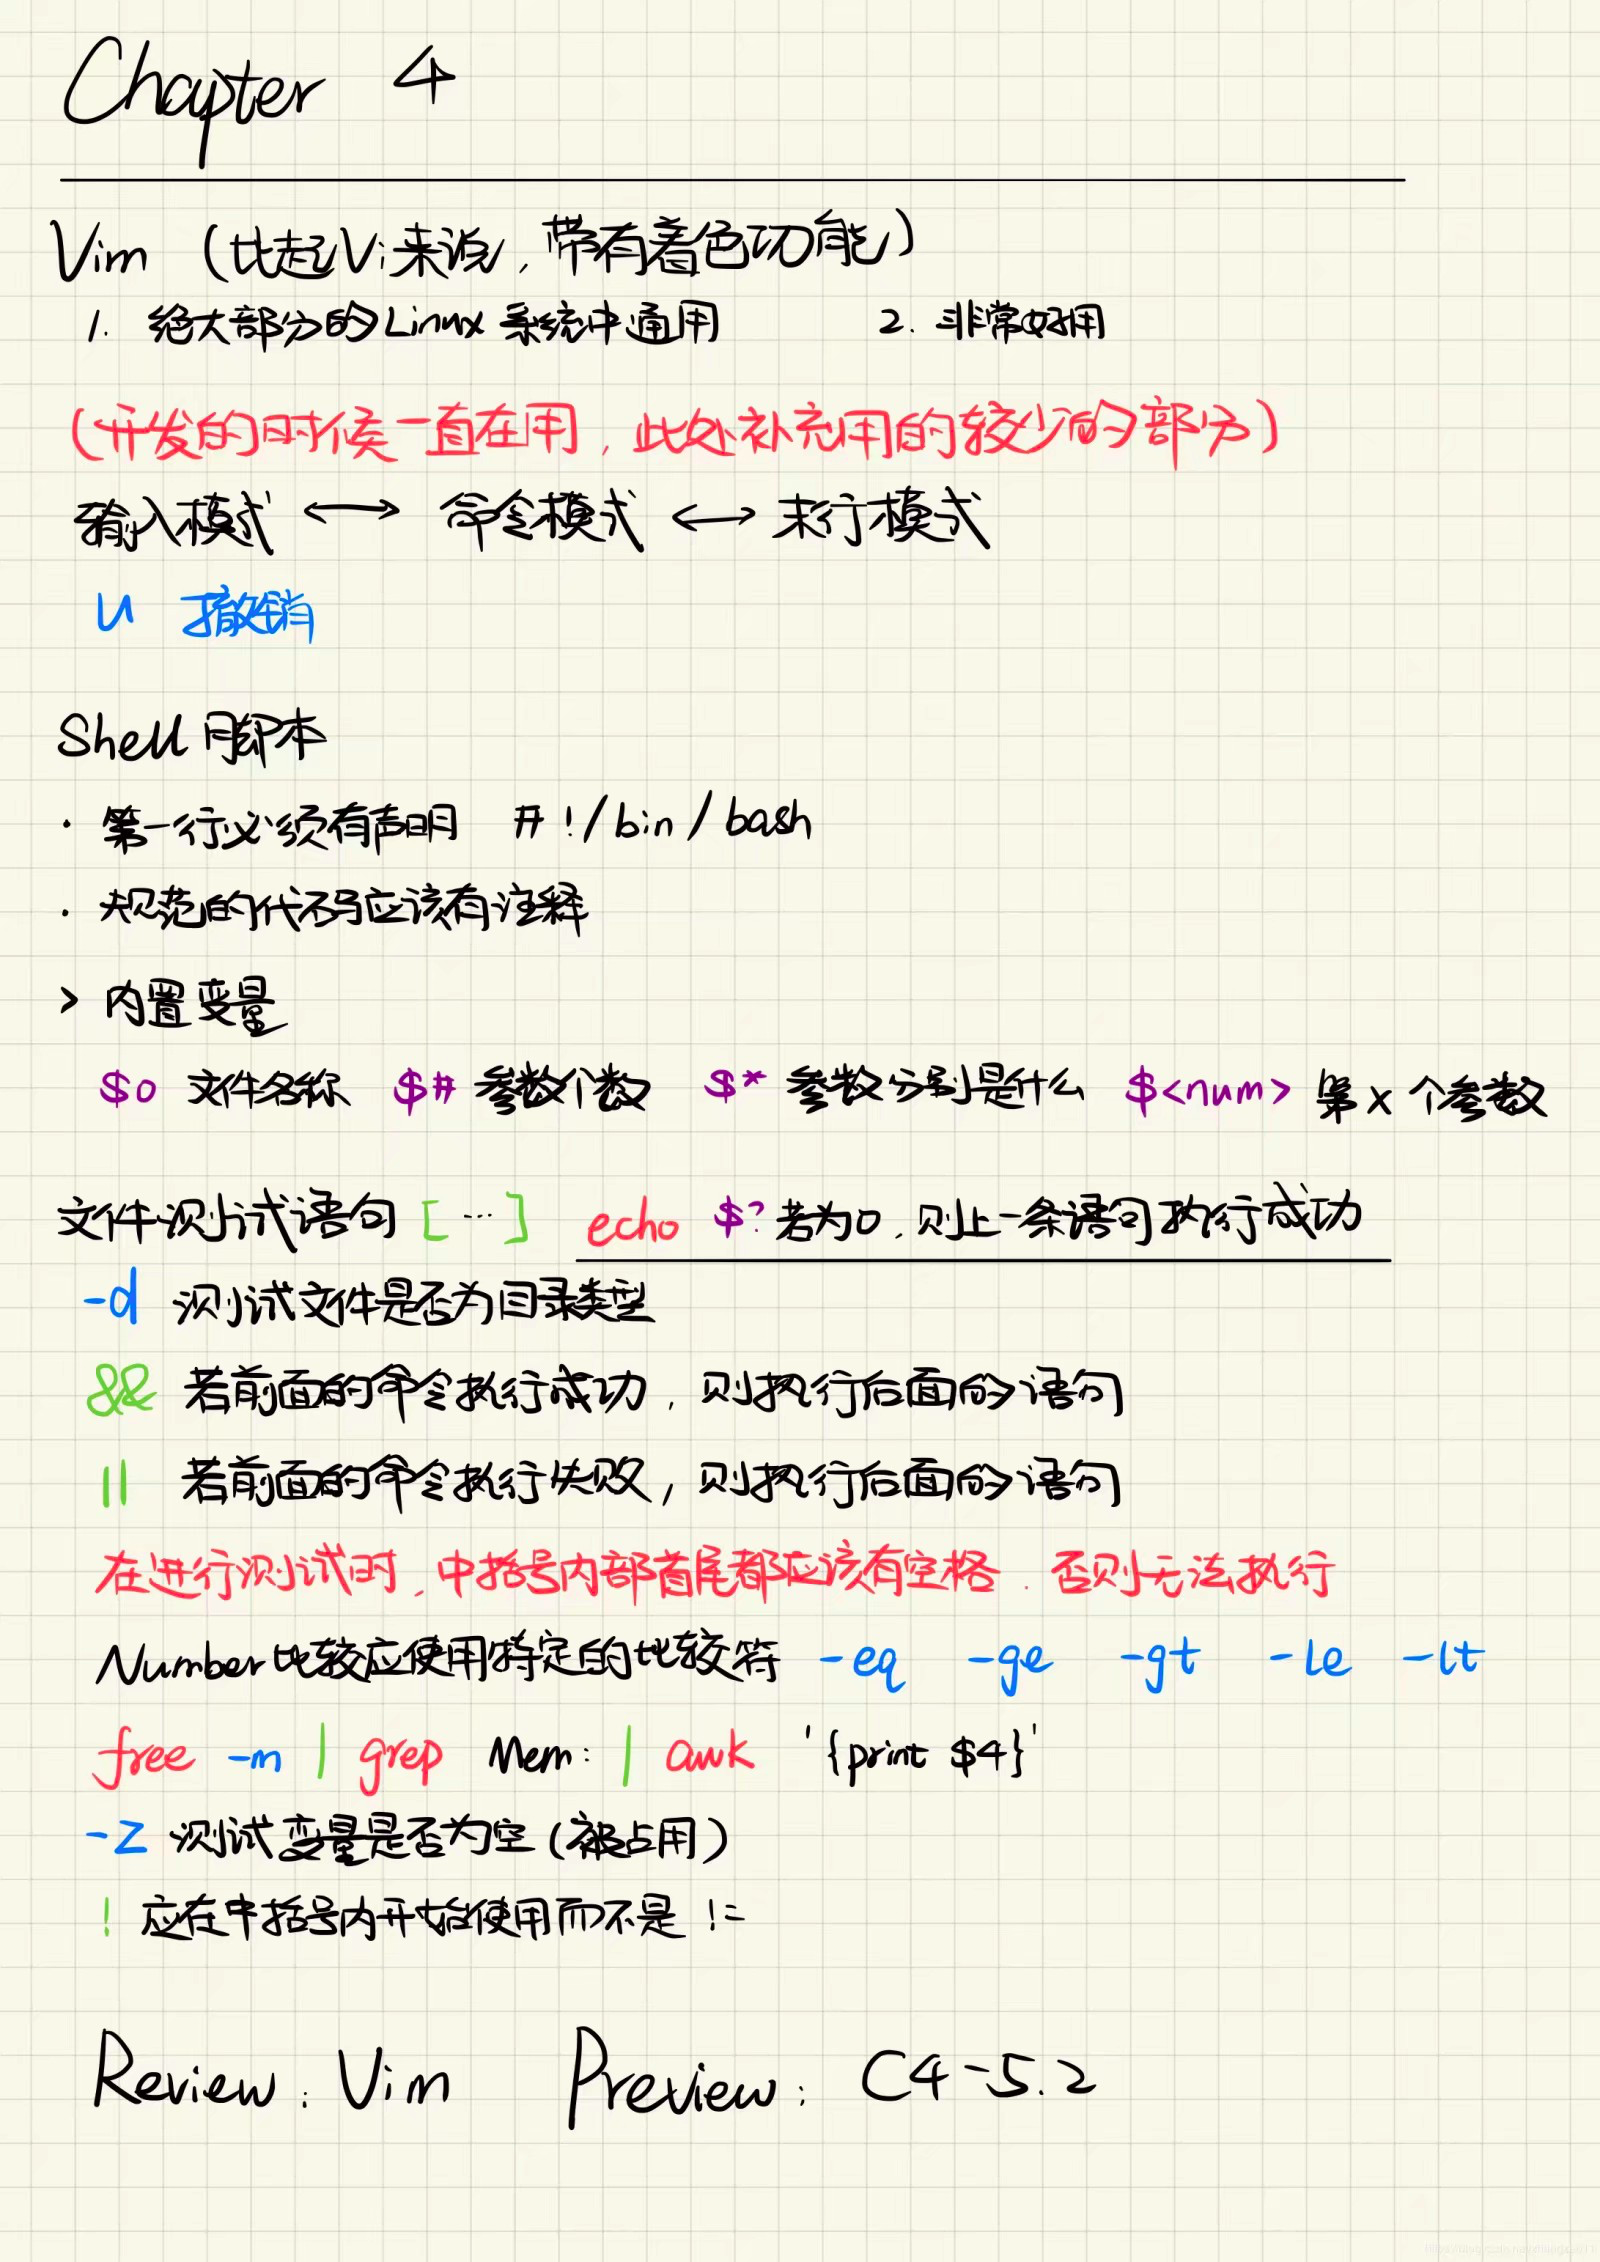 Chapter 4
Vim (比起Vi来说, 带有着色功能)
1. 绝大部分的Linux系统中通用 2. 非常好用
(开发的时候一直在用, 此处补充用的较少的部分)
输入模式 ⟷ 命令模式 ⟷ 末行模式
U 撤销
Shell 脚本
· 第一行必须有声明 #!/bin/bash
· 规范的代码应该有注释
> 内置变量
$0 文件名称 $# 参数个数 $* 参数分别是什么 $<num> 第x个参数
文件测试语句 [ … ] echo $? 若为0, 则上一条语句执行成功
-d 测试文件是否为目录类型
&& 若前面的命令执行成功, 则执行后面的语句
|| 若前面的命令执行失败, 则执行后面的语句
在进行测试时, 中括号内部首尾都应该有空格. 否则无法执行
Number比较应使用特定的比较符 -eq -ge -gt -le -lt
free -m | grep Mem: | awk '{print $4}'
-Z 测试变量是否为空(被占用)
! 应在中括号内开始使用而不是 !=
Review: Vim Preview: C4-5.2